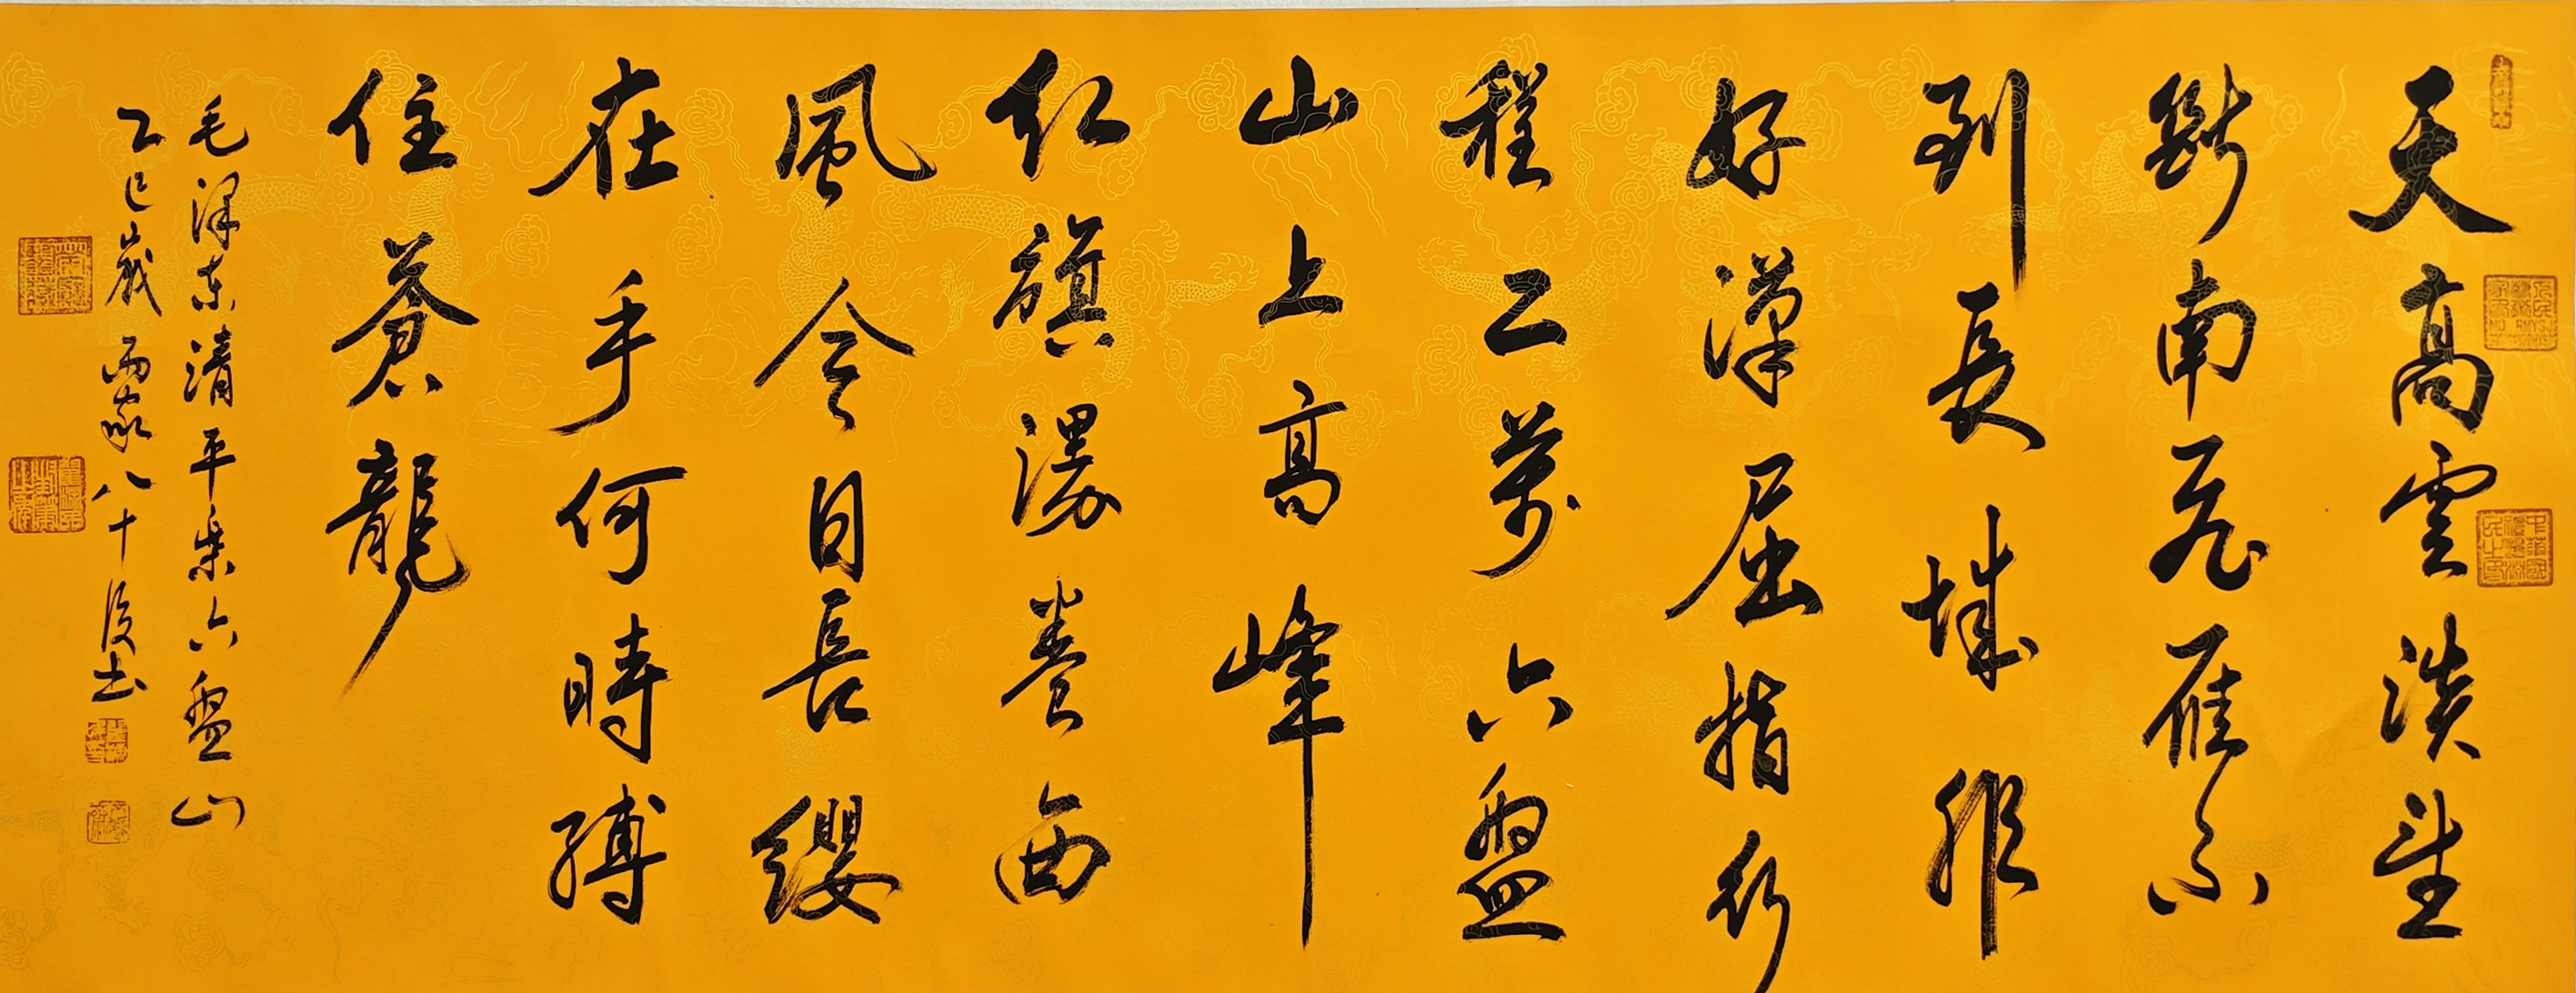 天高雲淡望
斷南飛雁不
到長城非
好漢屈指行
程二萬六盤
山上高峰
紅旗漫卷西
風今日長纓
在手何時縛
住蒼龍
毛澤東清平樂六盤山
乙巳歲八十後書